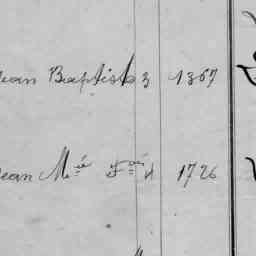 Jean Baptiste 3 1367
Jean Mie Fois 4 1726